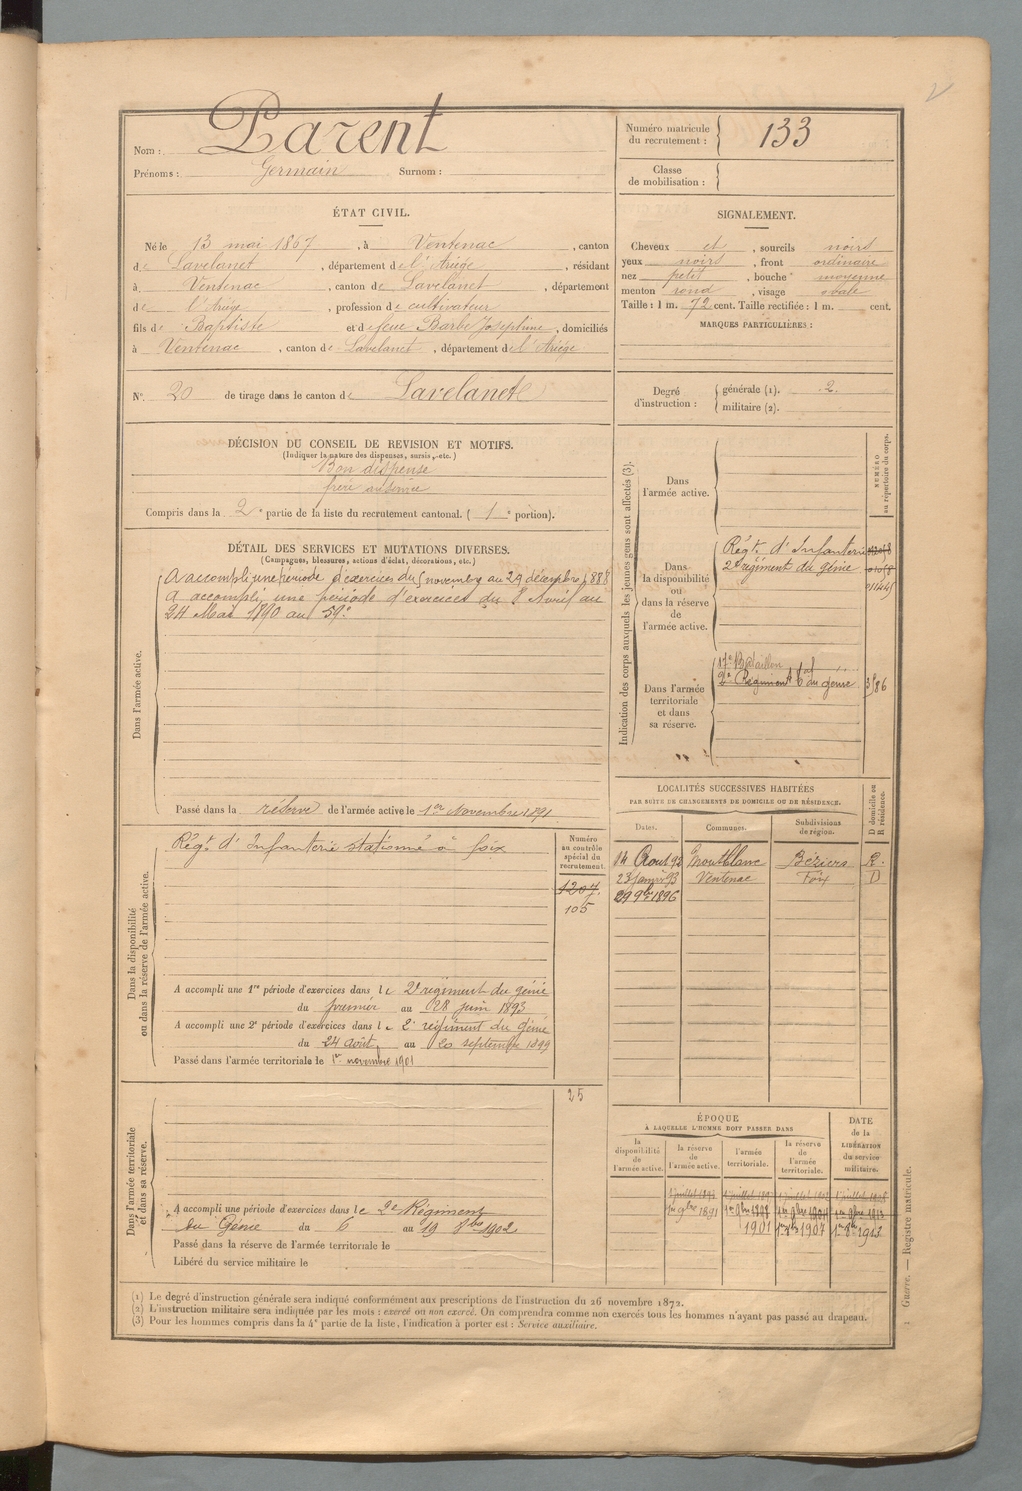 Nom : Parent
Prénoms : Germain Surnom :
Numéro matricule du recrutement : 133
Classe de mobilisation :
ÉTAT CIVIL.
Né le 13 mai 1867, à Ventenac, canton
de Lavelanet, département de l'Ariège, résidant
à Ventenac, canton de Lavelanet, département
de l'Ariège, profession de cultivateur
fils de Baptiste et de feue Barbe Joséphine, domiciliés
à Ventenac, canton de Lavelanet, département de l'Ariège
N° 20 de tirage dans le canton de Lavelanet
SIGNALEMENT.
Cheveux et, sourcils noirs
yeux noirs, front ordinaire
nez petit, bouche moyenne
menton rond, visage ovale
Taille : 1 m. 72 cent. Taille rectifiée : 1 m. cent.
MARQUES PARTICULIÈRES :
Degré d'instruction : générale (1). 2.
militaire (2).
DÉCISION DU CONSEIL DE REVISION ET MOTIFS.
(Indiquer la nature des dispenses, sursis, etc.)
Bon dispense
frère au service
Compris dans la 2e partie de la liste du recrutement cantonal. (1e portion).
DÉTAIL DES SERVICES ET MUTATIONS DIVERSES.
(Campagnes, blessures, actions d'éclat, décorations, etc.)
Dans l'armée active.
A accompli une période d'exercices du 5 novembre au 29 décembre 1888
A accompli une période d'exercices du 8 Avril au
24 Mai 1890 au 59e
Passé dans la réserve de l'armée active le 1er Novembre 1891
Indication des corps auxquels les jeunes gens sont affectés (3).
NUMÉRO au répertoire du corps.
Dans l'armée active.
Dans la disponibilité ou dans la réserve de l'armée active.
Régt. d'Infanterie
2e régiment du génie
Dans l'armée territoriale et dans sa réserve.
17e Bataillon
2e Régiment du génie
LOCALITÉS SUCCESSIVES HABITÉES
PAR SUITE DE CHANGEMENTS DE DOMICILE OU DE RÉSIDENCE.
Dates. Communes. Subdivisions de région. D domicile ou R résidence.
14 Aout 92 Montblanc Béziers R.
23 janvier 93 Ventenac Foix D
29 9bre 1896
Dans la disponibilité ou dans la réserve de l'armée active.
Régt. d'Infanterie stationné à Foix
Numéro au contrôle spécial du recrutement.
1207
105
A accompli une 1re période d'exercices dans le 2e régiment du génie
du premier au 28 juin 1893
A accompli une 2e période d'exercices dans le 2e régiment du génie
du 24 août au 20 septembre 1899
Passé dans l'armée territoriale le 1er novembre 1901
Dans l'armée territoriale et dans sa réserve.
25
A accompli une période d'exercices dans le 2e Régiment
du Génie du 6 au 19 8bre 1902
Passé dans la réserve de l'armée territoriale le
Libéré du service militaire le
ÉPOQUE
À LAQUELLE L'HOMME DOIT PASSER DANS
la disponibilité de l'armée active. la réserve de l'armée active. l'armée territoriale. la réserve de l'armée territoriale.
DATE de la LIBÉRATION du service militaire.
1er 9bre 1891
1901 1907 1913
(1) Le degré d'instruction générale sera indiqué conformément aux prescriptions de l'instruction du 26 novembre 1872.
(2) L'instruction militaire sera indiquée par les mots : exercé ou non exercé. On comprendra comme non exercés tous les hommes n'ayant pas passé au drapeau.
(3) Pour les hommes compris dans la 4e partie de la liste, l'indication à porter est : Service auxiliaire.
Guerre. — Registre matricule.